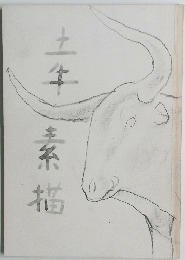 土牛
素描